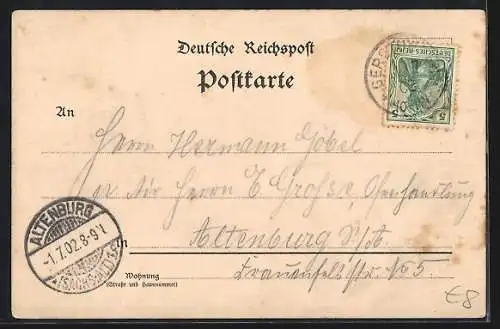 Deutsche Reichspost
Postkarte
An
Herrn Hermann Göbel
Herrn E. Grohse, Ofenhandlung
In
Altenburg S/A.
Wohnung
(Straße und Hausnummer)
Frauenfelsstr. No 5.
ALTENBURG
-1.7.02.8-9V.
DEUTSCHES REICH
5 5
€8